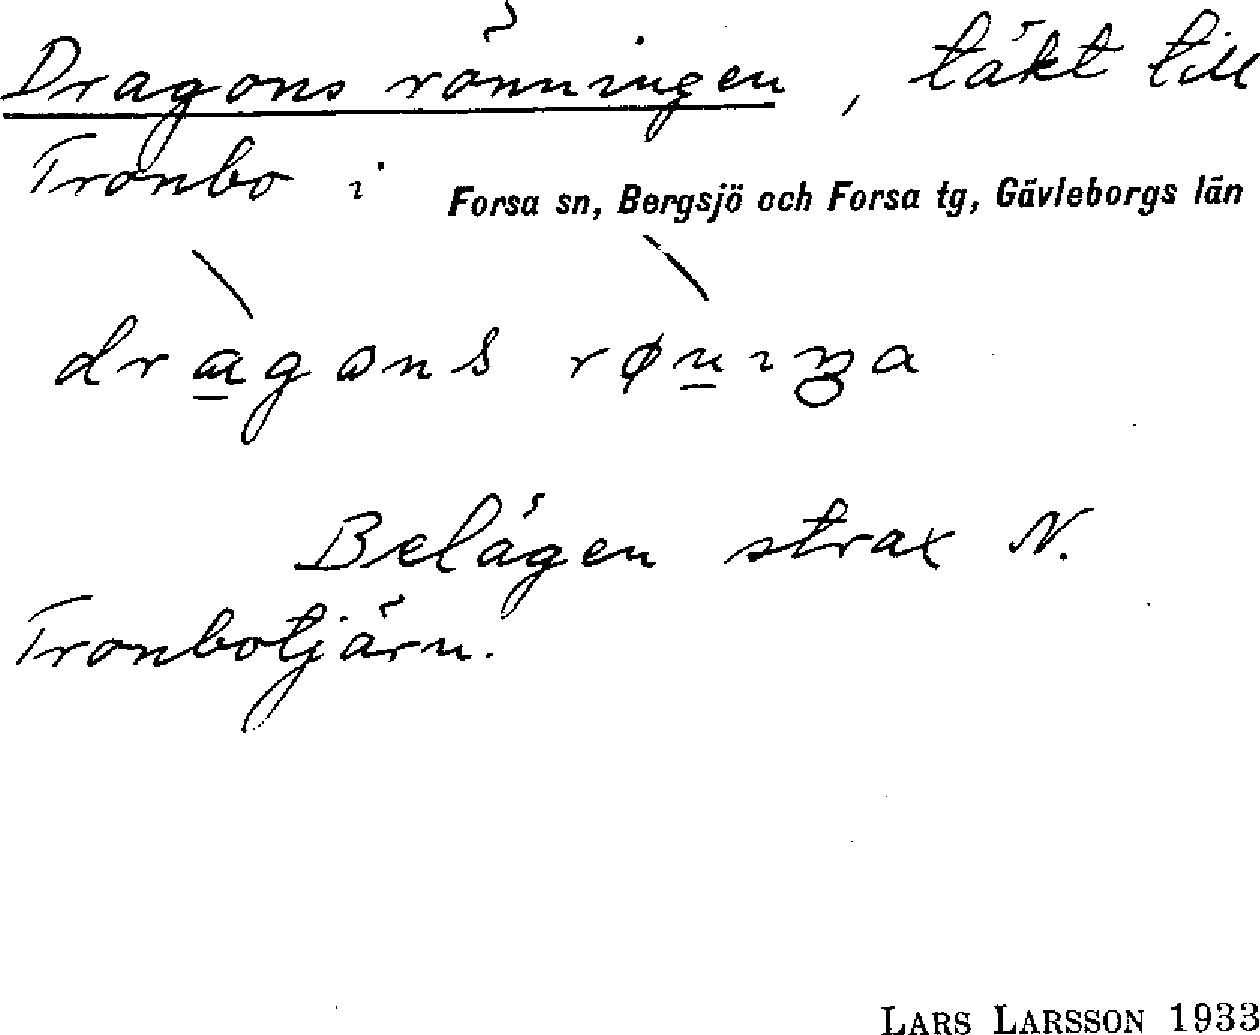 Dragons rönningen, täkt till
Tronbo i Forsa sn, Bergsjö och Forsa tg, Gävleborgs län
dragons rønıŋa
Belägen strax N.
Tronbotjärn.
LARS LARSSON 1933